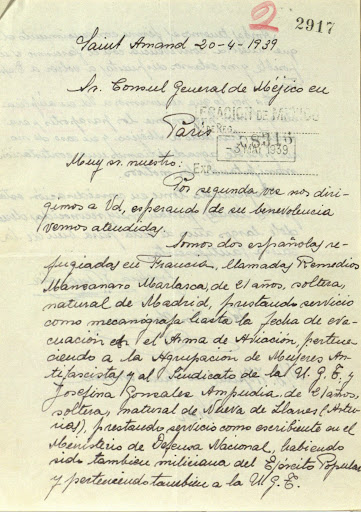 2
2917
Saint Amand - 20-4-1939
Sr. Consul General de Méjico en
Paris
LEGACION DE MEXICO
08316
1939
Muy sr. nuestro:
Por segunda vez nos diri-
gimos a Vd, esperando de su benevolencia
vernos atendidas.
Somos dos españolas re-
fugiadas en Francia, llamadas Remedios
Manzanaro Marlasca, de 21 años, soltera,
natural de Madrid, prestando servicio
como mecanógrafa hasta la fecha de eva-
cuación en el Arma de Aviación, pertene-
ciendo a la Agrupación de Mujeres Anti-
fascistas y al Sindicato de la U.G.T. y
Josefina Gonzalez Ampudia, de 21 años,
soltera, natural de Nueva de Llanes (Astu-
rias), prestando servicio como escribiente en el
Ministerio de Defensa Nacional, habiendo
sido tambien miliciana del Ejército Popular
y perteneciendo tambien a la U.G.T.